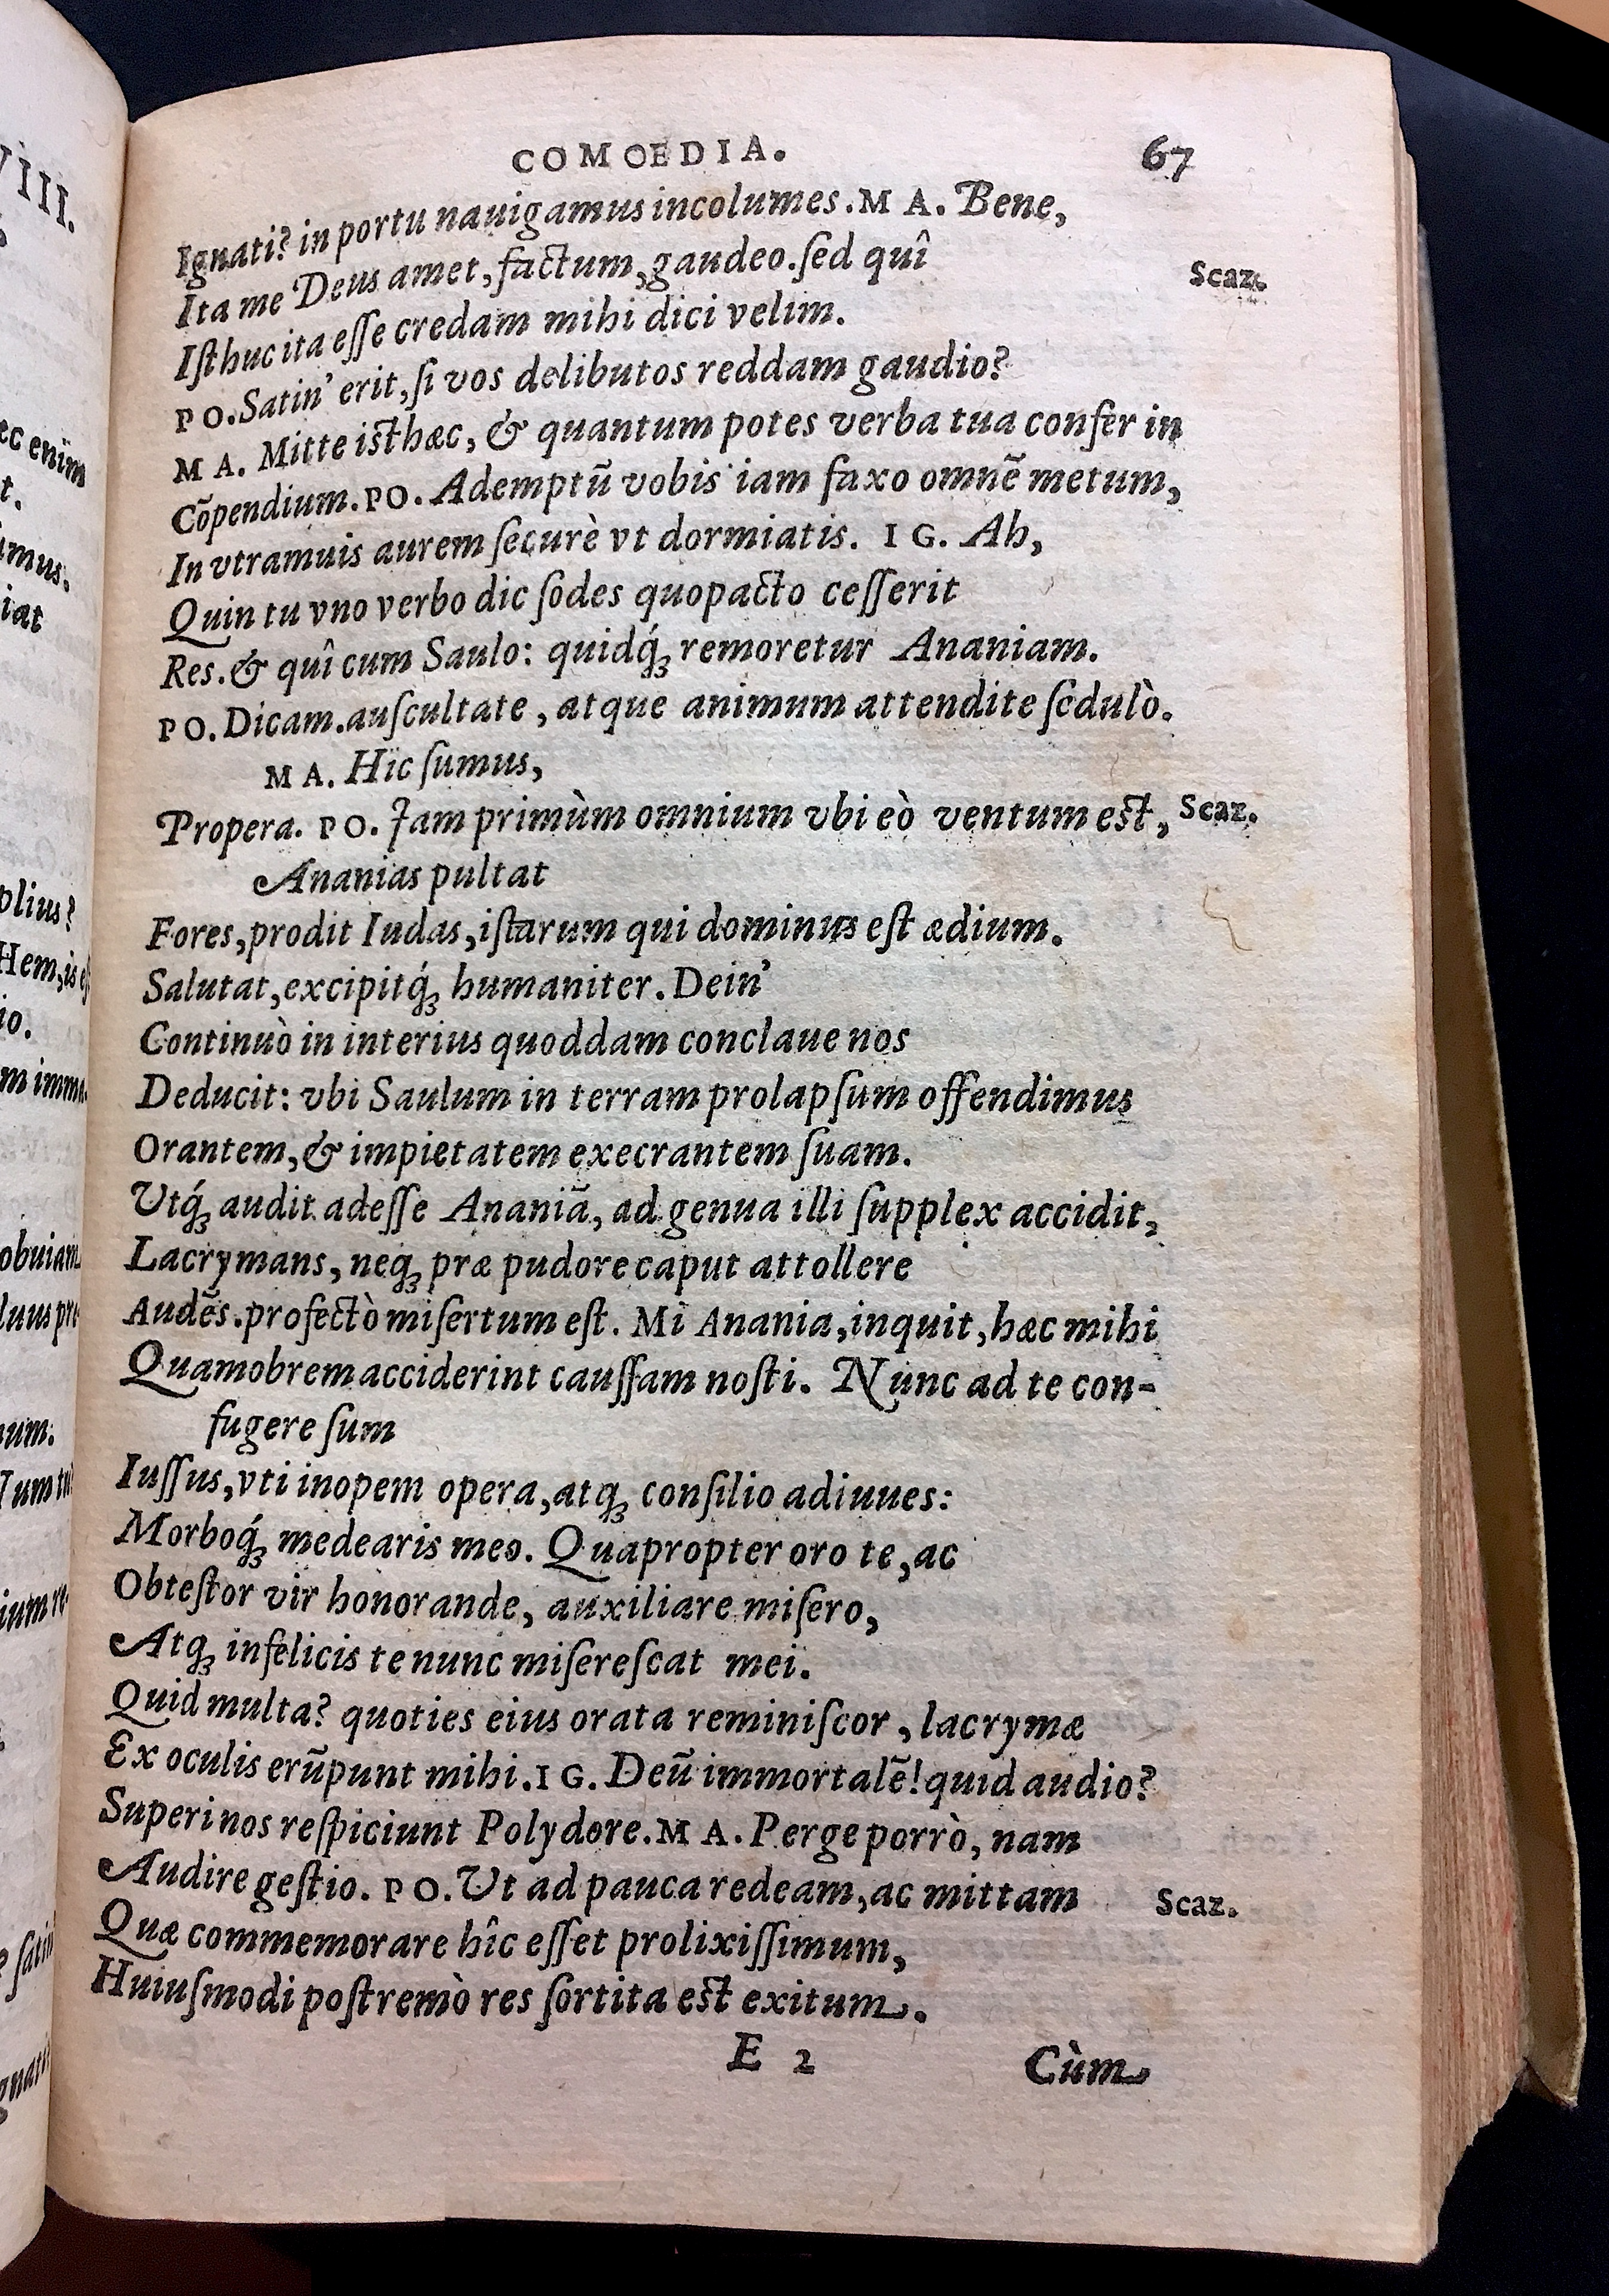 COMOEDIA. 67
Ignati? in portu nauigamus incolumes. M A. Bene,
Ita me Deus amet, factum, gaudeo. sed quî Scaz.
Isthuc ita esse credam mihi dici velim.
P O. Satin' erit, si vos delibutos reddam gaudio?
M A. Mitte isthæc, & quantum potes verba tua confer in
Cõpendium. P O. Ademptũ vobis iam faxo omnẽ metum,
In vtramuis aurem securè vt dormiatis. I G. Ah,
Quin tu vno verbo dic sodes quo pacto cesserit
Res. & quî cum Saulo: quidq́; remoretur Ananiam.
P O. Dicam. auscultate, atque animum attendite sedulò.
M A. Hic sumus,
Propera. P O. Iam primùm omnium vbi eò ventum est, Scaz.
Ananias pultat
Fores, prodit Iudas, istarum qui dominus est ædium.
Salutat, excipitq́; humaniter. Dein'
Continuò in interius quoddam conclaue nos
Deducit: vbi Saulum in terram prolapsum offendimus
Orantem, & impietatem execrantem suam.
Vtq́; audit adesse Ananiã, ad genua illi supplex accidit,
Lacrymans, neq; præ pudore caput attollere
Audẽs. profectò misertum est. Mi Anania, inquit, hæc mihi
Quamobrem acciderint caussam nosti. Nunc ad te con-
fugere sum
Iussus, vti inopem opera, atq; consilio adiuues:
Morboq́; medearis meo. Quapropter oro te, ac
Obtestor vir honorande, auxiliare misero,
Atq; infelicis te nunc miserescat mei.
Quid multa? quoties eius orata reminiscor, lacrymæ
Ex oculis erũpunt mihi. I G. Deũ immortalẽ! quid audio?
Superi nos respiciunt Polydore. M A. Perge porrò, nam
Audire gestio. P O. Vt ad pauca redeam, ac mittam Scaz.
Quæ commemorare hîc esset prolixissimum,
Huiusmodi postremò res sortita est exitum.
E 2 Cùm
VIII.
ec enim
t.
imus:
iat
plius?
Hem, is
io.
obuiam
num: